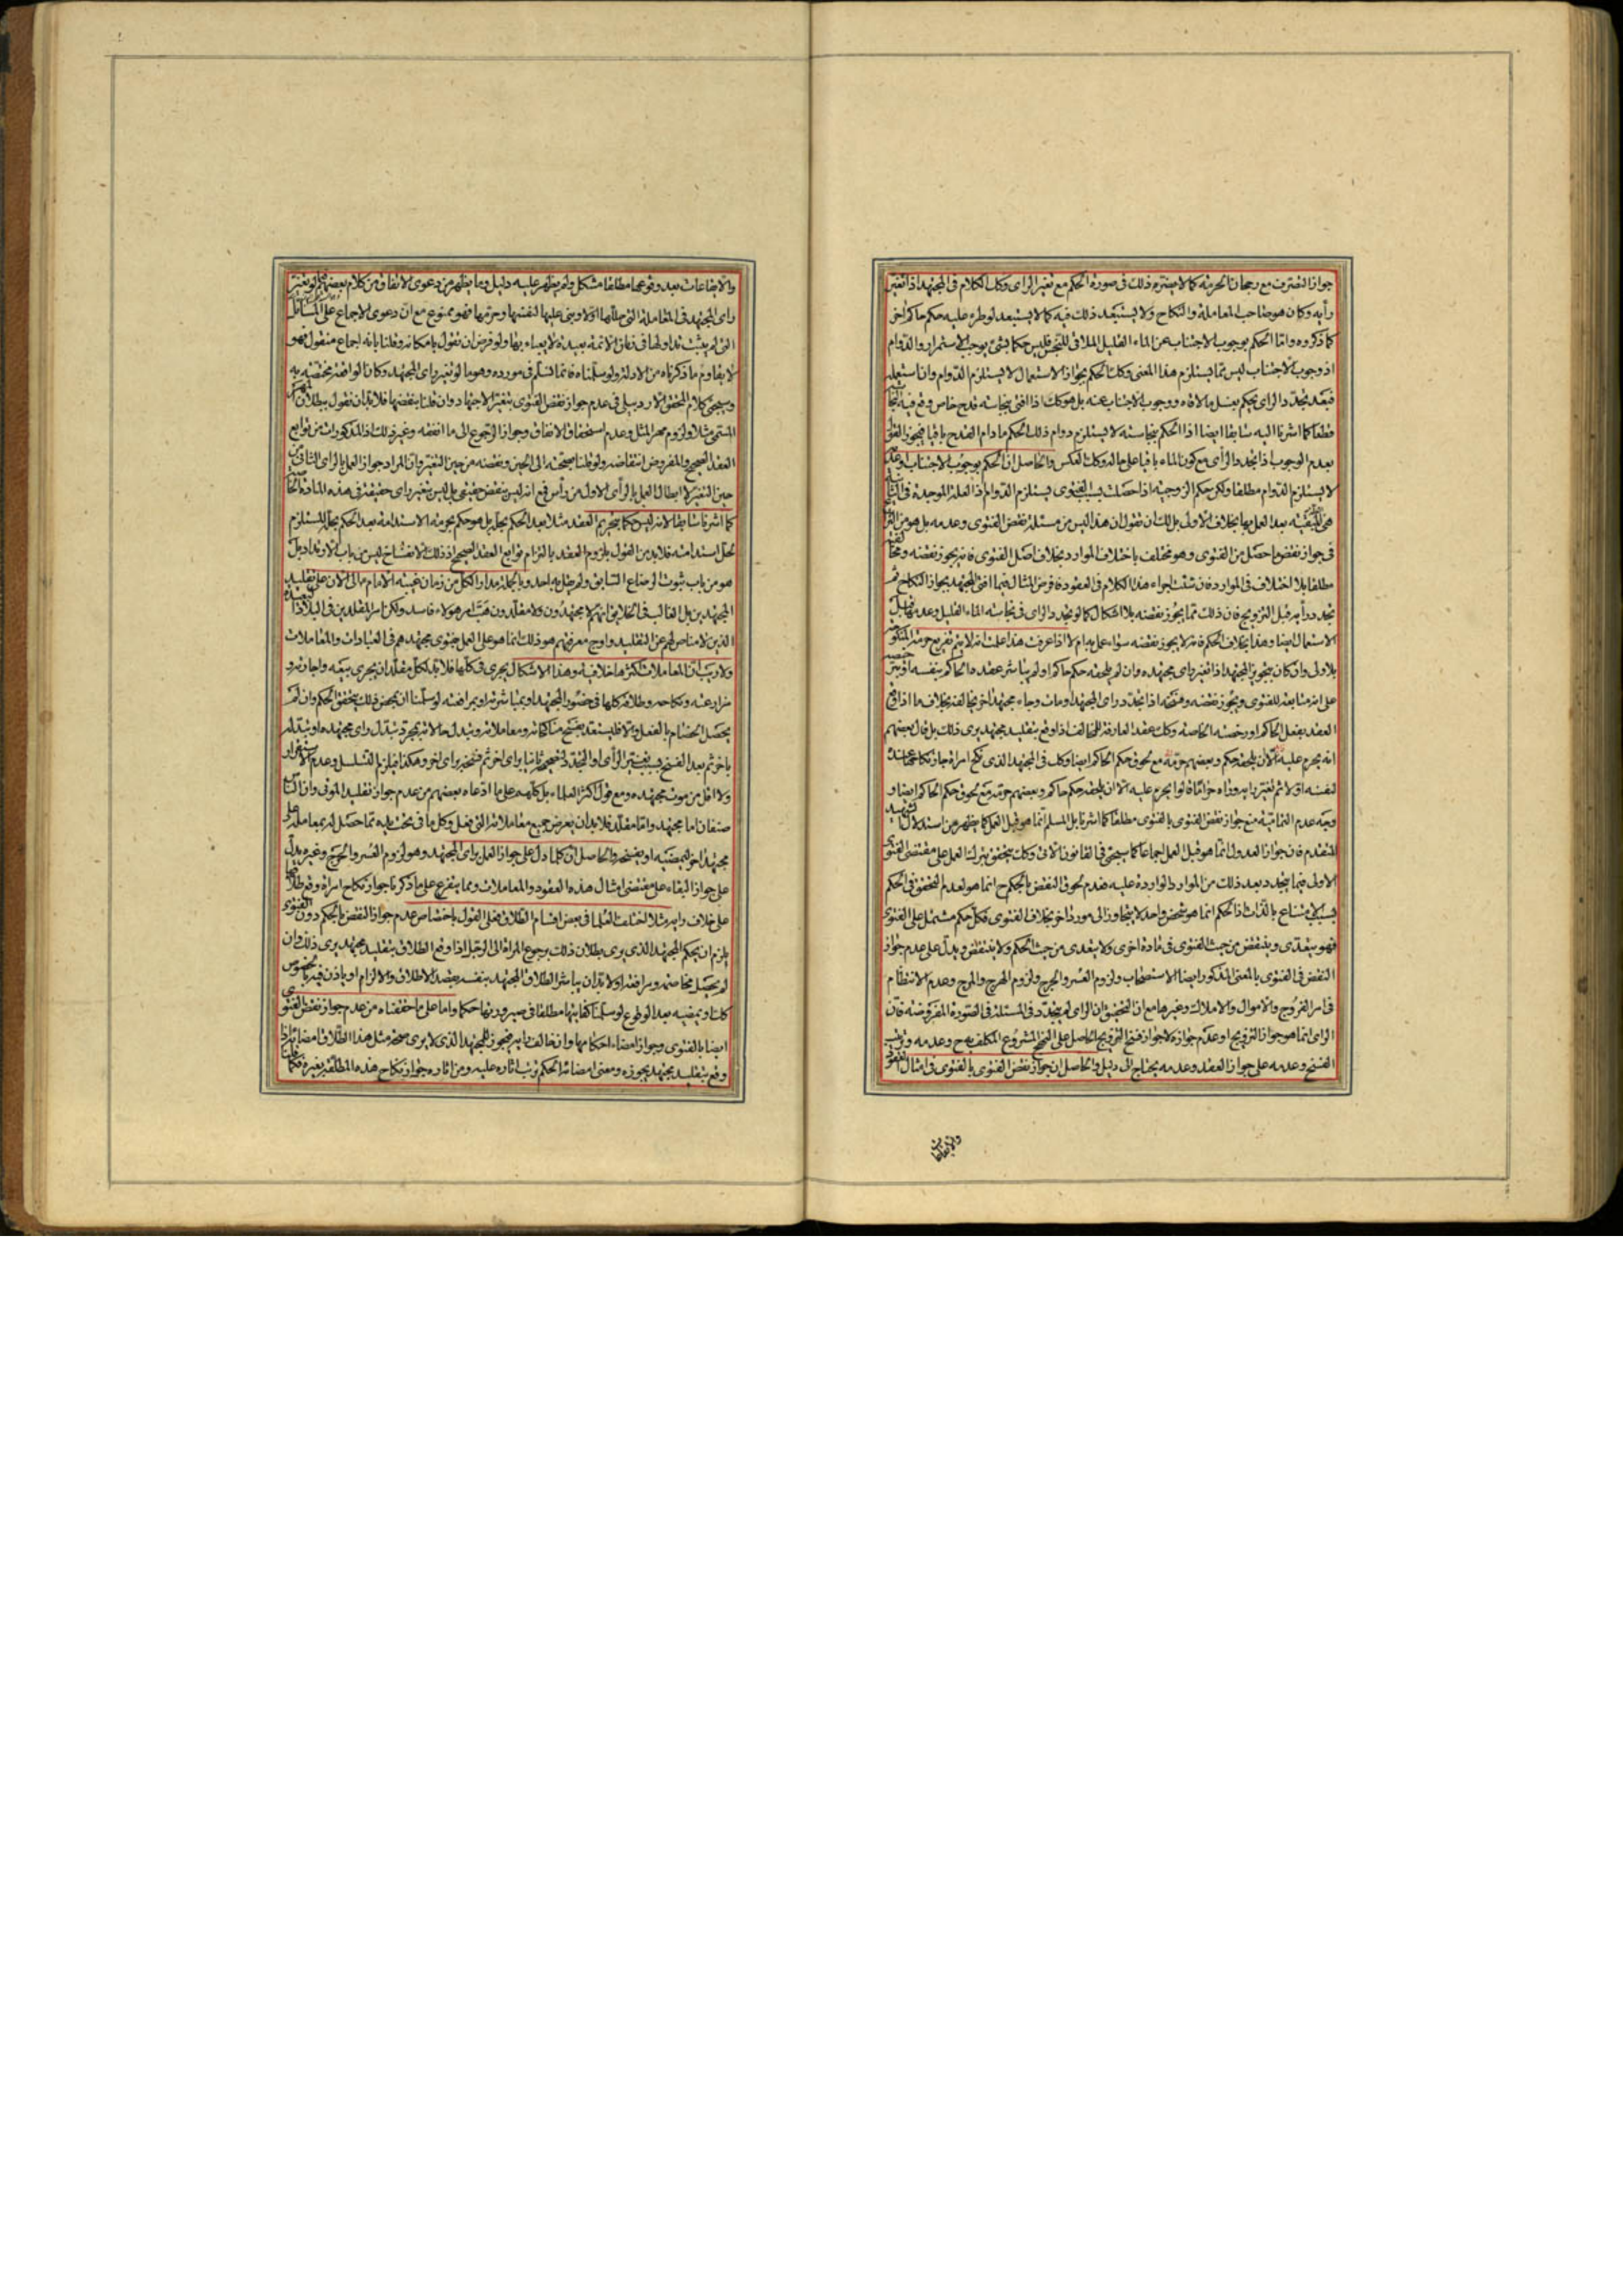 جواز التصرف مع رجحان الحرمة كما لا يضره ذلك في صورة الحكم مع تغير الراى وكك الكلام في المجتهد اذا تغير
رأيه وكان هو صاحب المعاملة والنكاح ولا يستبعد ذلك فيه كما لا يستبعد لو طرء عليه حكم حاكم اخر
كما ذكروه واما الحكم بوجوب الاجتناب عن الماء القليل الملاقى للنجس فليس حكما بشئ يوجب الاستمرار والدوام
اذ وجوب الاجتناب ليس مما يستلزم هذا المعنى وكك الحكم بجواز الاستعمال لا يستلزم الدوام وان استعمله
فبعد تجدد الراى يحكم بغسل ما لاقاه ووجوب الاجتناب عنه بل هو كك اذا افتى بنجاسته قدح خاص وقع فيه
قطعا كما اشرنا اليه سابقا ايضا اذا الحكم بنجاسته لا يستلزم دوام ذلك الحكم ما دام القدح باقيا فيجوز القول
بعدم الوجوب اذا تجدد الرأى مع كون الماء باقيا على حاله وكك العكس والحاصل ان الحكم بوجوب الاجتناب وعدمه
لا يستلزم الدوام مطلقا ولكن حكم الزوجية اذا حصلت بسبب الفتوى يستلزم الدوام اذ العلة الموجدة في
هى المبقية بعد العمل بها بخلاف الاولى بل لك ان تقول ان هذا ليس من مسئلة نقض الفتوى وعدمه بل هو من
في جواز نقض ما حصل من الفتوى وهو مختلف باختلاف الموارد بخلاف اصل الفتوى فانه يجوز نقضه
مطلقا بلا اختلاف في الموارد فان شئت اجراء هذا الكلام في العقود فافرض المثال فيما افتى المجتهد بجواز النكاح ثم
تجدد رأيه قبل التزويج فان ذلك مما يجوز نقضه بلا اشكال كما لو تجدد الراى في نجاسة الماء القليل وعدمها قبل
الاستعمال ايضا وهذا بخلاف الحكم فانه لا يجوز نقضه سواء عمل به ام لا اذا عرفت هذا علمت انه لا يتم تفريع حرمة المنكوحة
بلا ولى وان كان بتجويز المجتهد اذا تغير راى مجتهده وان لم يلحقه حكم حاكم او لم يباشر عقده الحاكم بنفسه
على انه متابعة للفتوى ويجوز نقضه وفسخه اذا تجدد راى المجتهد او مات وجاء مجتهد اخر يخالفه بخلاف ما اذا وقع
العقد بفعل الحاكم او رخصته الخاصة وكك عقد المعارضة للمخالف اذا وقع بتقليد مجتهد يرى ذلك بل قال بعضهم
انه يحرم عليه الا ان يلحقه حكم وبعضهم حرمه مع لحوق حكم الحاكم ايضا وكك في المجتهد الذى نكح امراة جاز نكاحها عنده
لنفسه اولا ثم تغير رايه وراه حراما قالوا يحرم عليه الا ان يلحقه حكم حاكم وبعضهم حرمه مع لحوق حكم الحاكم ايضا و
وجه عدم التمامية منع جواز نقض الفتوى بالفتوى مطلقا كما اشرنا بل المسلم انما هو قبل العمل كما يظهر من استدلال الشهيد
المتقدم فان جواز العدول انما هو قبل العمل اجماعا كما سيجئ في القانون الاتى وكك يتحقق بترك العمل على مقتضى الفتوى
الاولى فيما يتجدد بعد ذلك من الموارد الواردة عليه فعدم لحوق النقض بالحكم ح انما هو لعدم التحقق في الحكم
بسبب الامتناع بالذات اذ الحكم انما هو شخص واحد لا يتجاوز الى مورد اخر بخلاف الفتوى فكل حكم مشتمل على الفتوى
فهو يتعدى وينتقض من حيث الفتوى في مادة اخرى ولا يتعدى من حيث الحكم ولا ينتقض ويدل على عدم جواز
النقض في الفتوى بالمعنى المذكور ايضا الاستصحاب ولزوم العسر والحرج ولزوم الهرج والمرج وعدم الانتظام
في امر الفروج والاموال والاملاك وغيرها مع ان التحقيق ان الراى لم يتجدد في المسئلة في الصورة المفروضة فان
الراى انما هو جواز التزويج او عدم جوازه لا جواز فسخ التزويج الحاصل على النهج المشروع المكلف به ح وعدمه وترتب
الفسخ وعدمه على جواز العقد وعدمه يحتاج الى دليل والحاصل ان جواز نقض الفتوى بالفتوى في امثال العقود
والايقاعات
والايقاعات بعد وقوعها مطلقا مشكل ولم يظهر عليه دليل وما يظهر من دعوى الاتفاق من كلام بعضهم لو تغير
راى المجتهد في المعاملة التى حللها اولا وبنى عليها لنفسها وحرمها فهو ممنوع مع ان دعوى الاجماع على المسائل
التى لم يثبت تداولها في زمان الائمة بعيدة لا يعباء بها ولو فرض ان نقول بامكانه وقلنا بانه اجماع منقول فهو
لا يقاوم ما ذكرناه من الادلة ولو سلمناه فانما نسلم في مورده وهو ما لو تغير راى المجتهد وكان الواقعة مختصة به
وسيجئ كلام المحقق الاردبيلى في عدم جواز نقض الفتوى بتغير الاجتهاد وان قلنا بنقضها فلا بد ان نقول ببطلان المهر
المسمى مثلا ولزوم مهر المثل وعدم استحقاق الانفاق وجواز الرجوع الى ما انفقه وغير ذلك اذ المذكورات من توابع
العقد الصحيح والمفروض انتقاضه ولو قلنا بصحته الى الحين ونقضه من حين التغير وان المراد جواز العمل بالراى الثانى من
حين التغير لا ابطال العمل بالرأى الاول من رأس فمع انه ليس بنقض حقيقى بل ليس بتغير راى حقيقة في هذه المادة
كما اشرنا سابقا لانه ليس حكما بتحريم العقد مثلا بعد الحكم بحله بل هو حكم بحرمة الاستدامة بعد الحكم بحله المستلزم
لحل استدامته فلا بد من القول بلزوم العقد بالتزام توابع العقد الصحيح اذ ذلك الانفساخ ليس من باب الارتداد بل
هو من باب ثبوت الرضاع السابق ولم يقل به احد وبالجملة مدار الكل من زمان غيبة الامام ع الى الان على تقليد
المجتهدين بل الغالب في الخلايق انهم لا مجتهدون ولا مقلدون هب امر هؤلاء فاسد ولكن امر المقلدين في البلاد
الذين لا مناص لهم عن التقليد واوج معرفتهم هو ذلك انما هو على العمل بفتوى مجتهدهم في العبادات والمعاملات
ولا ريب ان المعاملات اكثرها خلافية وهذا الاشكال يجرى في كلها فلا بد لكل مقلد ان يجرى بيعه واجارته و
مزارعته ونكاحه وطلاقه كلها في حضور المجتهد او بمباشرته او بمرافعته لو سلمنا ان بمحض ذلك يتحقق الحكم وان لم
يحصل الخصام بالفعل والا فليستعد بفسخ مناكحاته ومعاملاته وتبدل حالاته بمجرد تبدل راى مجتهده او تبدله
باخر ثم بعد الفسخ بسبب تغير الرأى او المجتهد ثانيا براى اخر ثم فسخه براى اخر وهكذا فيلزم التسلسل وعدم الاستقرار
ولا اقل من موت مجتهده ومع قول اكثر العلماء بل كلهم على ما ادعاه بعضهم من عدم جواز تقليد الموتى وان الناس
صنفان اما مجتهد واما مقلد فلا بد ان يعرض جميع معاملاته التى فعل وكل ما في تحت يده مما حصل له بمعاملة على
مجتهد اخر ليمضيه او يفسخه والحاصل ان كلما دل على جواز العمل براى المجتهد وهو لزوم العسر والحرج وغيره يدل
على جواز البقاء على مقتضى امثال هذه العقود والمعاملات ومما يتفرع على ما ذكرنا جواز نكاح امراة وقع طلاقها
على خلاف رايه مثلا اختلف العلما في بعض اقسام الطلاق فعلى القول باختصاص عدم جواز النقض بالحكم دون الفتوى
يلزم ان يحكم المجتهد الذى يرى بطلان ذلك برجوع المراة الى الرجل اذا وقع الطلاق بتقليد مجتهد يرى ذلك وان
لم يحصل مخاصمة ومرافعة اولا بد ان يباشر الطلاق المجتهد بنفسه بقصد الاطلاق والالزام او ياذن فيه بالخصوص
كك او يمضيه بعد الوقوع لو سلمنا كفايتها مطلقا في صيرورتها حكما واما على ما حققناه من عدم جواز نقض الفتوى
ايضا بالفتوى وجواز امضاء احكامها وان خالف رايه فيجوز للمجتهد الذى لا يرى صحة مثل هذا الطلاق امضائه اذا
وقع بتقليد مجتهد يجوزه ومعنى امضائه الحكم بترتب اثاره عليه ومن اثاره جواز نكاح هذه المطلقة بغيره فكما